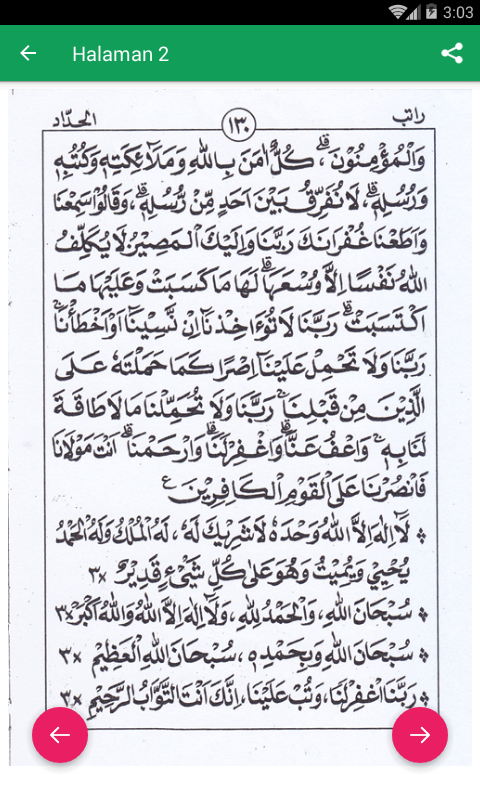 3:03
Halaman 2
راتب ١٣٠ الحدّاد
وَالْمُؤْمِنُوْنَ ۗ، كُلٌّ اٰمَنَ بِاللهِ وَمَلَآئِكَتِهٖ وَكُتُبِهٖ
وَرُسُلِهٖ ۗ، لَا نُفَرِّقُ بَيْنَ اَحَدٍ مِّنْ رُّسُلِهٖ ۗ، وَقَالُوْا سَمِعْنَا
وَاَطَعْنَا غُفْرَانَكَ رَبَّنَا وَاِلَيْكَ الْمَصِيْرُ لَا يُكَلِّفُ
اللهُ نَفْسًا اِلَّا وُسْعَهَا ۗ لَهَا مَا كَسَبَتْ وَعَلَيْهَا مَا
اكْتَسَبَتْ ۗ رَبَّنَا لَا تُؤَاخِذْنَا اِنْ نَّسِيْنَا اَوْ اَخْطَأْنَا ۚ
رَبَّنَا وَلَا تَحْمِلْ عَلَيْنَا اِصْرًا كَمَا حَمَلْتَهٗ عَلَى
الَّذِيْنَ مِنْ قَبْلِنَا ۚ رَبَّنَا وَلَا تُحَمِّلْنَا مَالَا طَاقَةَ
لَنَا بِهٖ ۚ وَاعْفُ عَنَّا ۗ وَاغْفِرْلَنَا ۗ وَارْحَمْنَا ۗ اَنْتَ مَوْلَانَا
فَانْصُرْنَا عَلَى الْقَوْمِ الْكَافِرِيْنَ ع
لَآ اِلٰهَ اِلَّا اللهُ وَحْدَهُ لَا شَرِيْكَ لَهُ، لَهُ الْمُلْكُ وَلَهُ الْحَمْدُ
يُحْيِيْ وَيُمِيْتُ وَهُوَ عَلٰى كُلِّ شَيْءٍ قَدِيْرٌ ×٣
سُبْحَانَ اللهِ، وَالْحَمْدُ لِلهِ، وَلَآ اِلٰهَ اِلَّا اللهُ وَاللهُ اَكْبَرُ ×٣
سُبْحَانَ اللهِ وَبِحَمْدِهِ، سُبْحَانَ اللهِ الْعَظِيْمِ ×٣
رَبَّنَا اغْفِرْلَنَا، وَتُبْ عَلَيْنَا، اِنَّكَ اَنْتَ التَّوَّابُ الرَّحِيْمُ ×٣